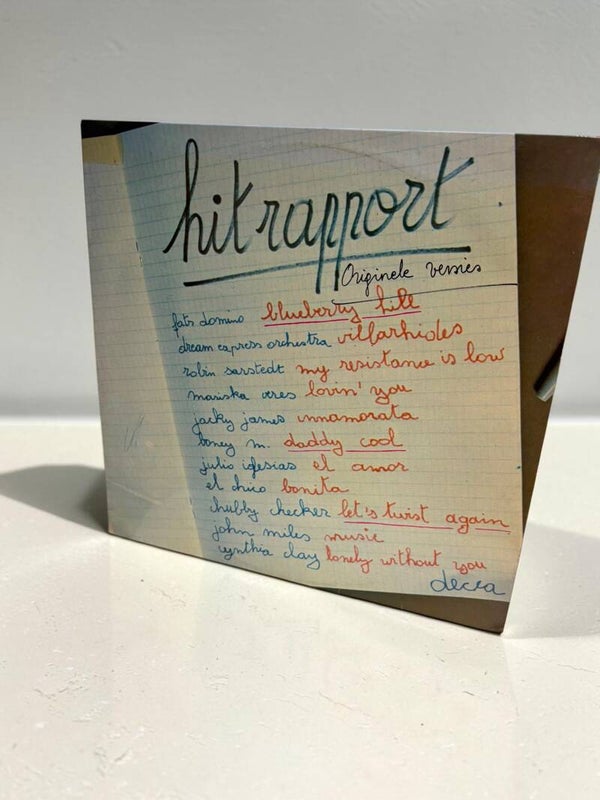 hitrapport
Originele versies
fats domino blueberry hill
dream express orchestra villarhides
robin sarstedt my resistance is low
mariska veres lovin' you
jacky james innamorata
boney m. daddy cool
julio iglesias el amor
el chico bonita
chubby checker let's twist again
john miles music
cynthia clay lonely without you
decca